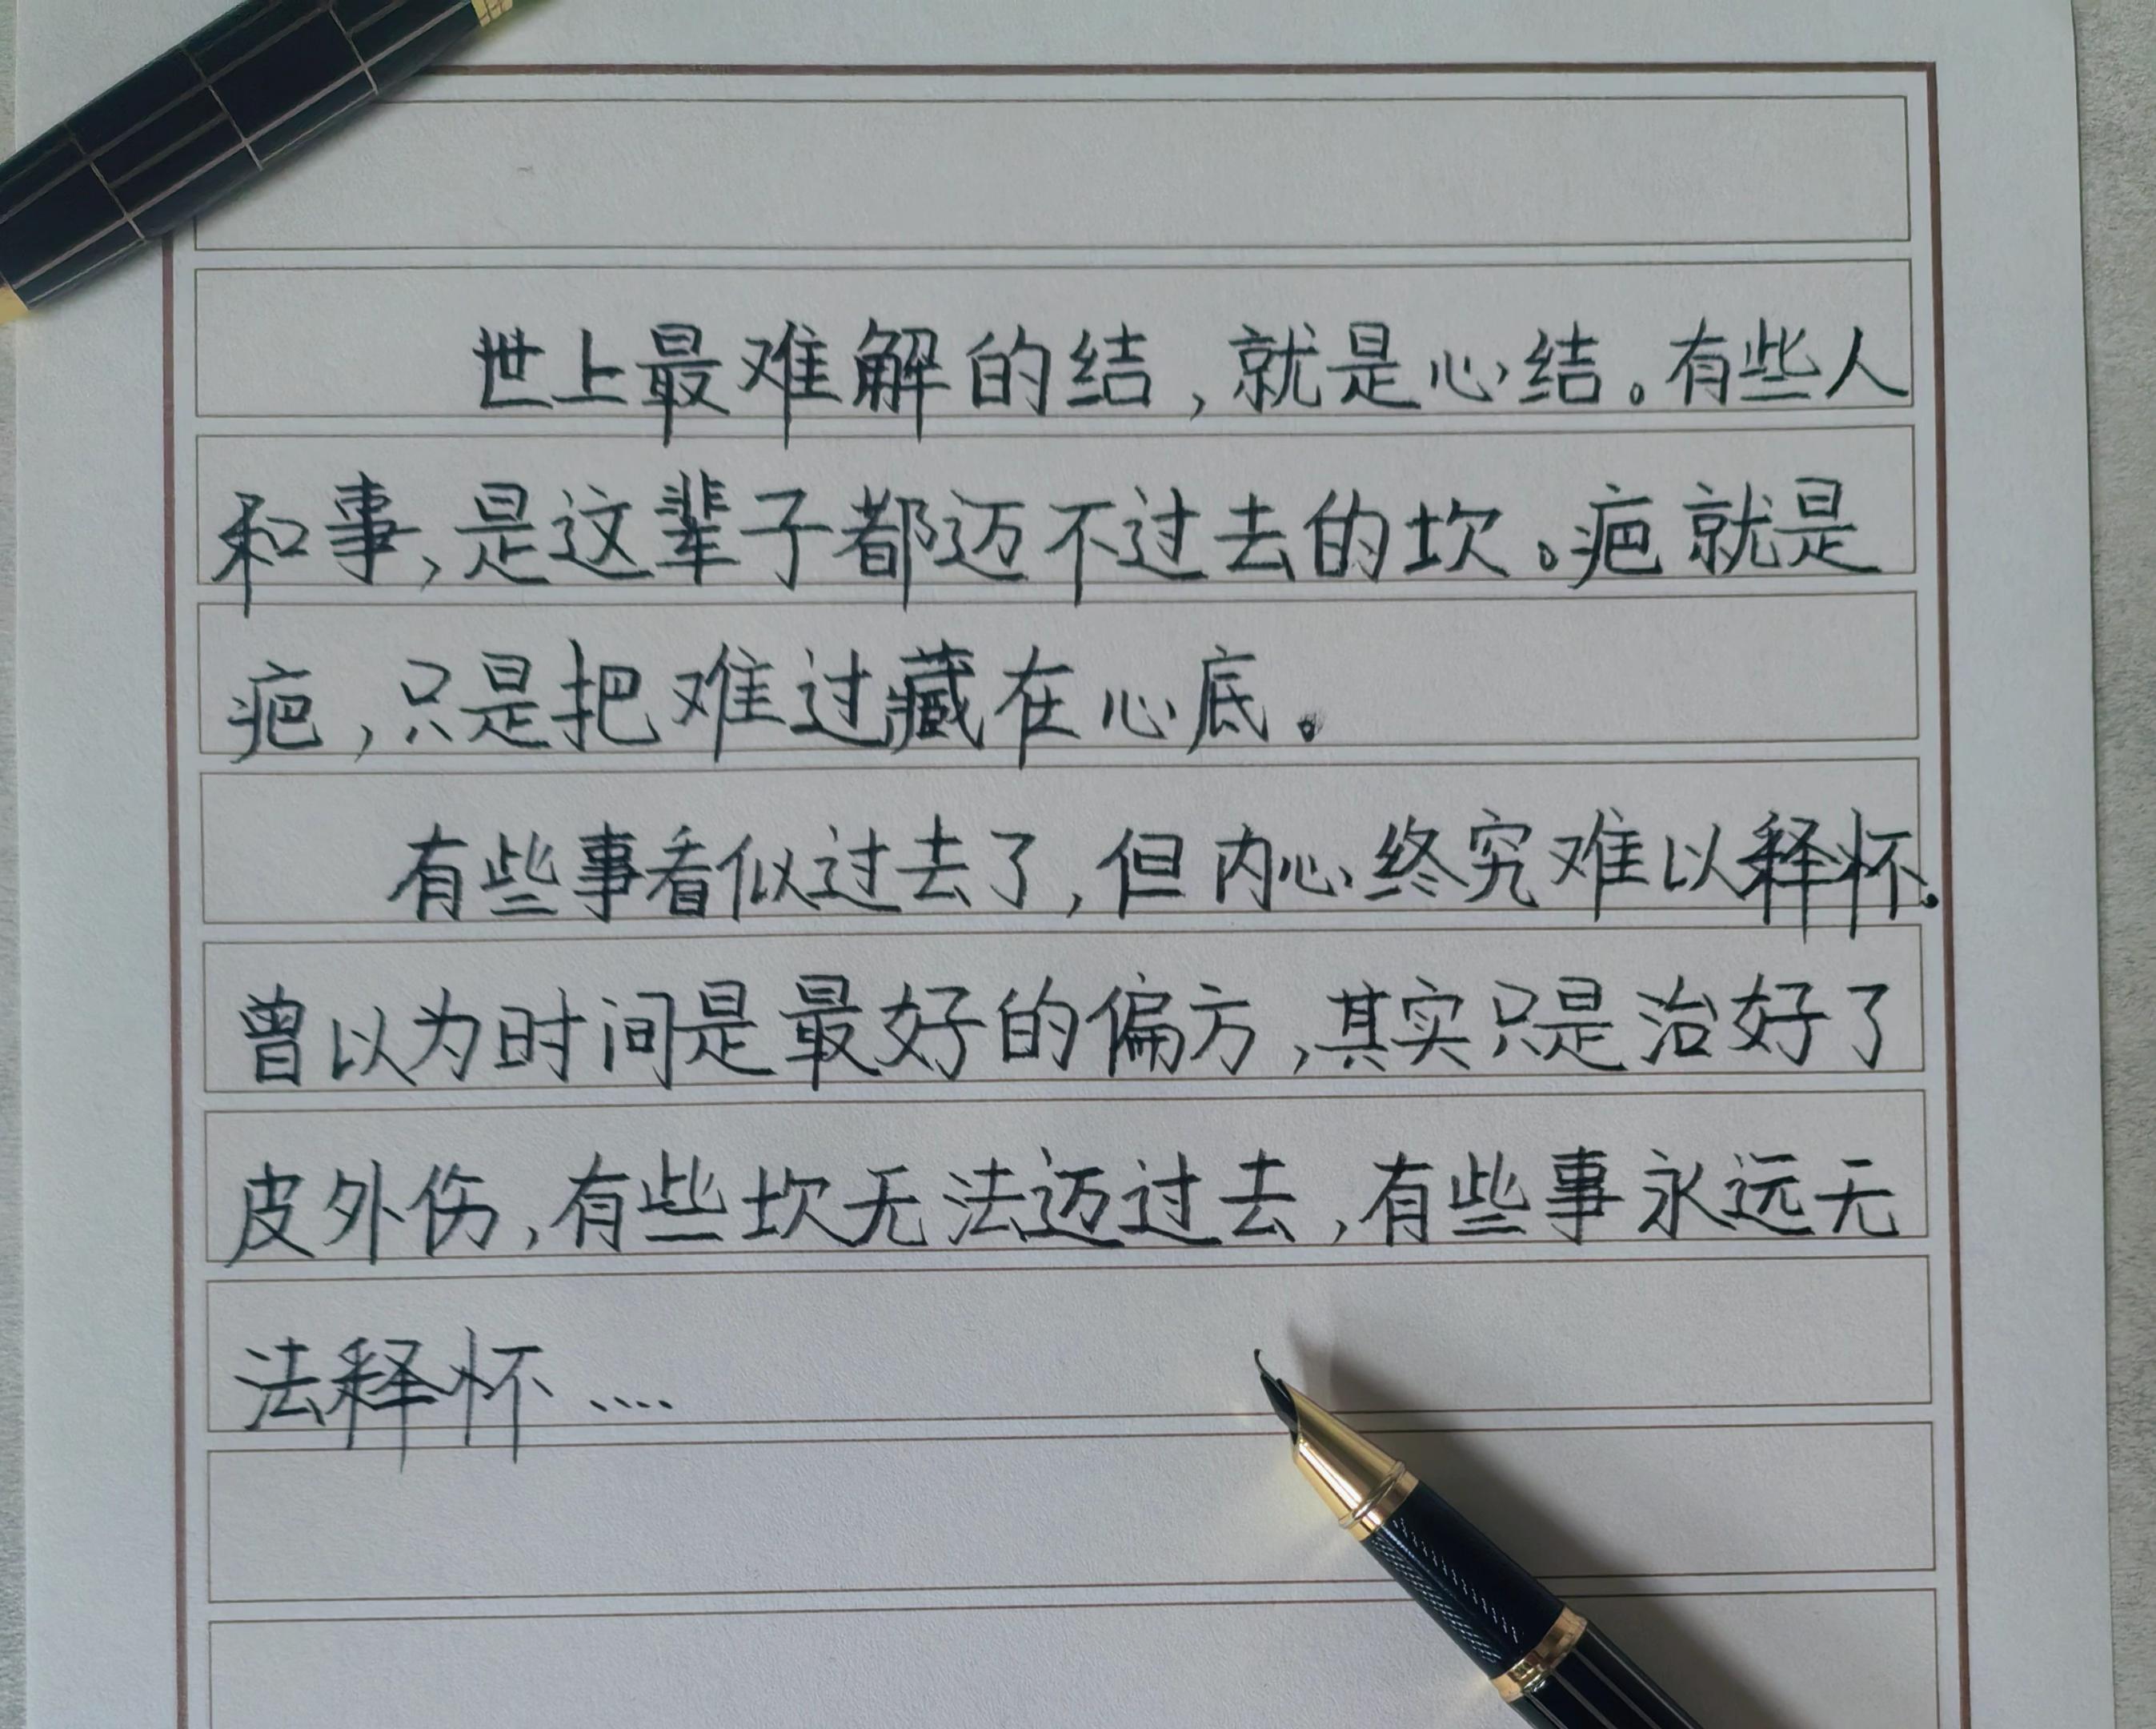 世上最难解的结,就是心结。有些人
和事,是这辈子都迈不过去的坎。疤就是
疤,只是把难过藏在心底。
有些事看似过去了,但内心终究难以释怀.
曾以为时间是最好的偏方,其实只是治好了
皮外伤,有些坎无法迈过去,有些事永远无
法释怀....